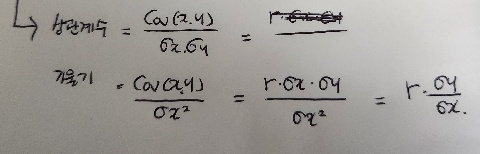 ↳ 상관계수 = Cov(x.y) / σx.σy =
기울기 = Cov(x,y) / σx² = r·σx·σy / σx² = r·σy / σx.